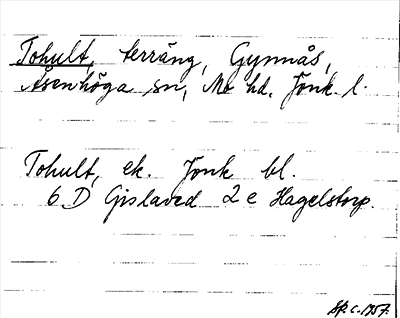 Tohult, terräng, Gynnås,
Åsenhöga sn, Mo hd, Jönk. l.
Tohult, ek. Jönk bl.
6 D Gislaved 2 e Hagelstorp.
Sp. c. 1957.